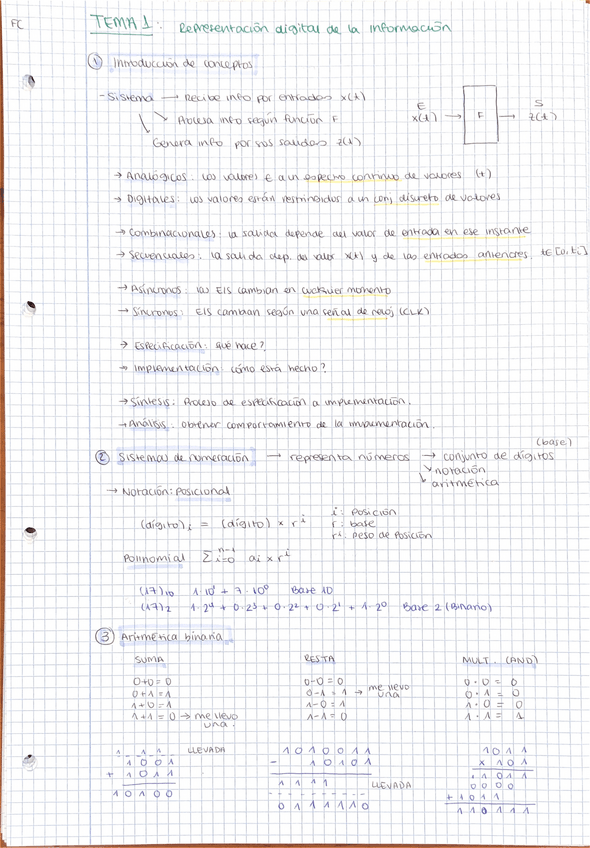 FC
TEMA 1: Representación digital de la información
① Introducción de conceptos.
- Sistema → Recibe info por entradas x(t)
↘ Procesa info según función F
↘ Genera info por sus salidas z(t)
E S
x(t) → F → z(t)
→ Analógicos: los valores ∈ a un espectro continuo de valores (t)
→ Digitales: los valores están restringidos a un conj discreto de valores
→ Combinacionales: la salida depende del valor de entrada en ese instante
→ Secuenciales: la salida dep. del valor x(t) y de las entradas anteriores. t∈[0,ti]
→ Asíncronos: las E/S cambian en cualquier momento
→ Síncronos: E/S cambian según una señal de reloj (CLK)
→ Especificación: qué hace?
→ Implementación: cómo está hecho?
→ Síntesis: Proceso de especificación a implementación.
→ Análisis: obtener comportamiento de la implementación.
(base)
② Sistemas de numeración → representa números → conjunto de dígitos
↘ notación
↘ aritmética
→ Notación: Posicional
(dígito)i = (dígito) × r^i
i: Posición
r: base
r^i: peso de posición
Polinomial Σ^{n-1}_{i=0} ai × r^i
(17)10 1·10^1 + 7·10^0 Base 10
(17)2 1·2^4 + 0·2^3 + 0·2^2 + 0·2^1 + 1·2^0 Base 2 (Binario)
③ Aritmética binaria
SUMA
0+0=0
0+1=1
1+0=1
1+1=0 → me llevo una.
RESTA
0-0=0
0-1=1 → me llevo una
1-0=1
1-1=0
MULT. (AND)
0·0=0
0·1=0
1·0=0
1·1=1
1 _ 1 1 _ LLEVADA
1001
+ 1011
10100
1010011
- 10101
1111 LLEVADA
0111110
1011
× 101
11011
0000
+1011
110111